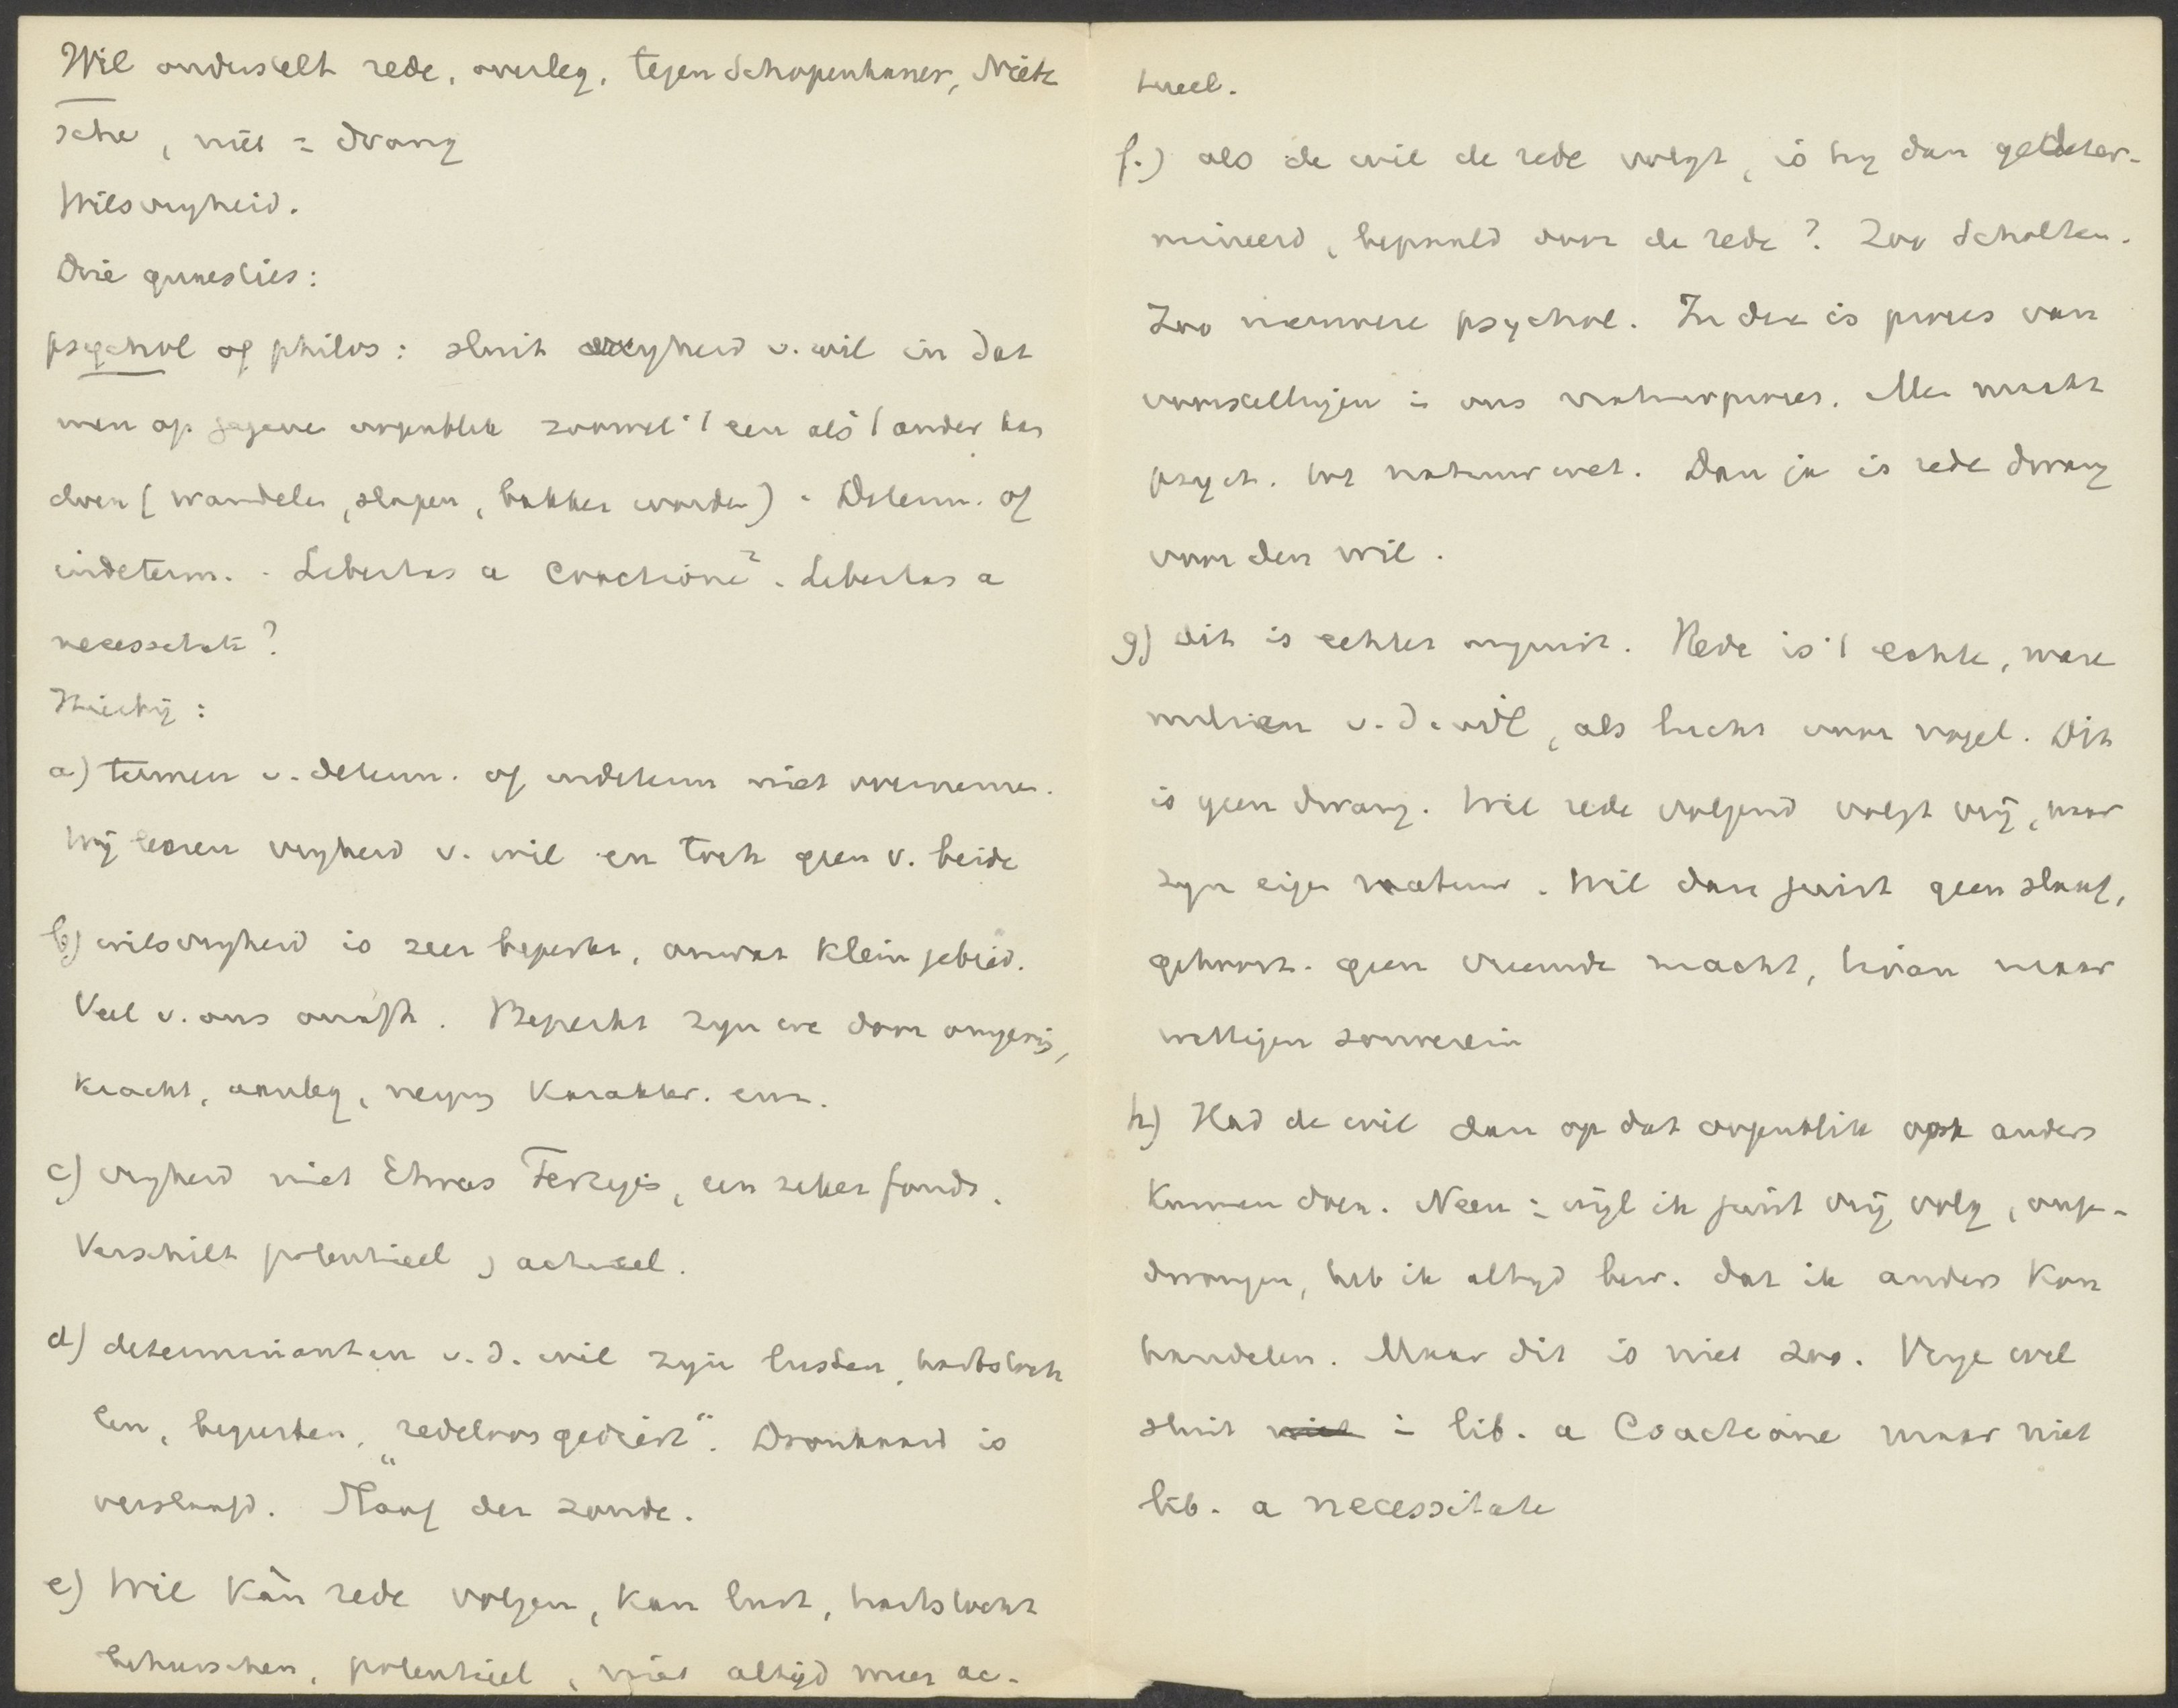 Wil onderstelt rede, overleg, tegen Schopenhauer, Nietz
sche, niet = drang
Wilsvryheid.
Drie quaesties:
psychol of philos: sluit vryheid v. wil in dat
men op gegeven oogenblik zoowel 't een als 't ander kan
doen (wandelen, slapen, bakker worden). Determ. of
indeterm. - Libertas a coactione? - Libertas a
necessitate?
Hierby:
a) termen v. determ. of indeterm niet overnemen.
Wij leeren vryheid v. wil en toch geen v. beide
b) wilsvryheid is zeer beperkt, omvat klein gebied.
Veel v. ons onafh. Beperkt zyn we door omgeving,
kracht, aanleg, neiging karakter. enz.
c) vryheid niet Etwas Fertiges, een zeker fonds.
Verschilt potentieel, actueel.
d) determinanten v. d. wil zyn lusten, hartstoch
ten, begeerten, "redeloos gedierte". Dronkaard is
verslaafd. Slaaf der zonde.
e) Wil kàn rede volgen, kan lust, hartstocht
beheerschen, potentieel, niet altyd meer ac-
tueel.
f.) als de wil de rede volgt, is hy dan gedeter-
mineerd, bepaald door de rede? Zoo Scholten.
Zoo nieuwere psychol. In deze is proces van
voorstellingen is ons natuurproces. Men maakt
psych. tot natuurwet. Dan ja is rede dwang
voor den wil.
g) dit is echter onjuist. Rede is 't echte, ware
milieu v. d. wil, als lucht voor vogel. Dit
is geen dwang. Wil rede volgend volgt vrij, naar
zyn eigen natuur. Wil dan juist geen slaaf,
gehoorz. geen vreemde macht, hieran maar
wettigen souverein
h) Had de wil dan op dat oogenblik ook anders
kunnen doen. Neen: wijl ik juist vrij volg, onge-
dwongen, heb ik altyd bew. dat ik anders kon
handelen. Maar dit is niet zoo. Vrye wil
sluit niet in lib. a Coactione maar niet
lib. a necessitate